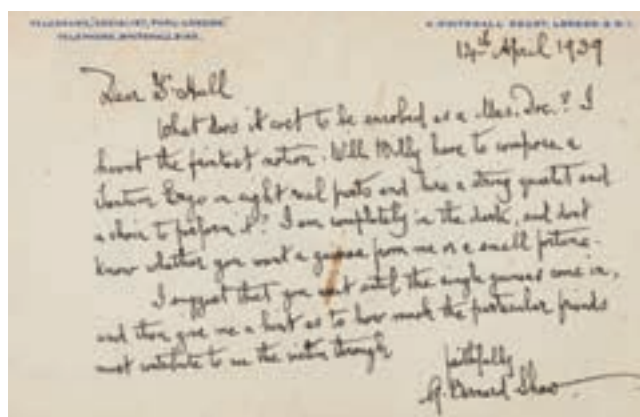 TELEGRAMS, "SOCIALIST, PARL-LONDON."
TELEPHONE, WHITEHALL 3160.
4 WHITEHALL COURT, LONDON S.W.1.
14th April 1939
Dear Dr Hull
What does it cost to be enrolled as a Mus. Doc.? I
havnt the faintest notion. Will Willy have to compose a
Ergo in eight real parts and hire a string quartet and
a choir to perform it? I am completely in the dark, and dont
know whether you want a guinea from me or a small fortune.
I suggest that you wait until the single guineas come in,
and then give me a hint as to how much the particular friends
must contribute to see the through
faithfully
G. Bernard Shaw